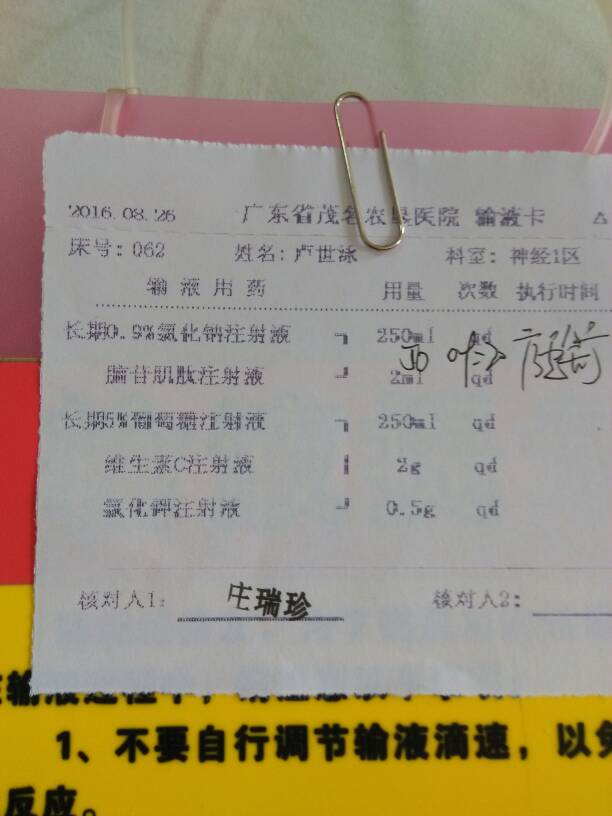 2016.08.26 广东省茂名农垦医院 输液卡
床号：062 姓名：卢世泳 科室：神经1区
输液用药 用量 次数 执行时间
长期0.9%氯化钠注射液 250ml qd
脑苷肌肽注射液 2ml qd
长期5%葡萄糖注射液 250ml qd
维生素C注射液 2g qd
氯化钾注射液 0.5g qd
核对人1： 庄瑞珍 核对人2：
1、不要自行调节输液滴速，以免
反应。